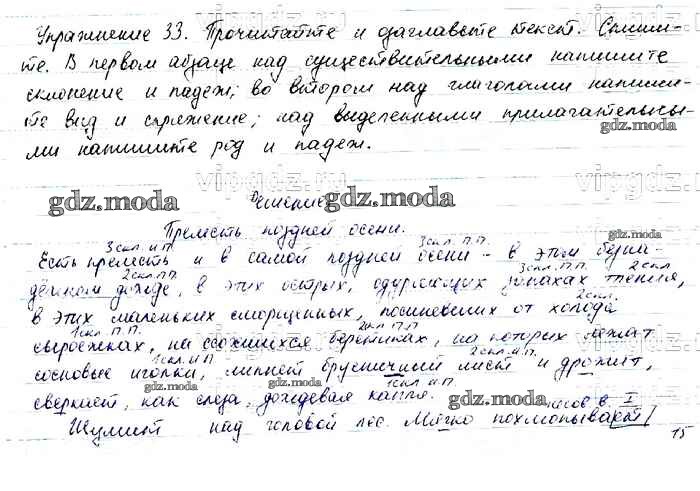 Упражнение 33. Прочитайте и озаглавьте текст. Спиши-
те. В первом абзаце над существительными напишите
склонение и падеж; во втором над глаголами напиши-
те вид и спряжение; над выделенными прилагательны-
ми напишите род и падеж.
gdz.moda
Решение
gdz.moda gdz.moda
Прелесть поздней осени.
3скл. И.П. 3скл. П.П.
Есть прелесть и в самой поздней осени - в этом безна-
2скл. П.П. 3скл. П.П. 2скл
дёжном дожде, в этих острых, одуряющих запахах тления,
2скл.
в этих маленьких сморщенных, посиневших от холода
1скл. П.П. 2скл. П.П.
сыроежках, на ссохшихся березниках, на которых лежат
1скл. И.П. 2скл. И.П.
сосновые иголки, липнет брусничный лист и дрожит,
gdz.moda gdz.moda
1скл. И.П.
сверкает, как слеза, дождевая капля.
gdz.moda
несов в. I
Шумит над головой лес. Мягко похлопывает
15